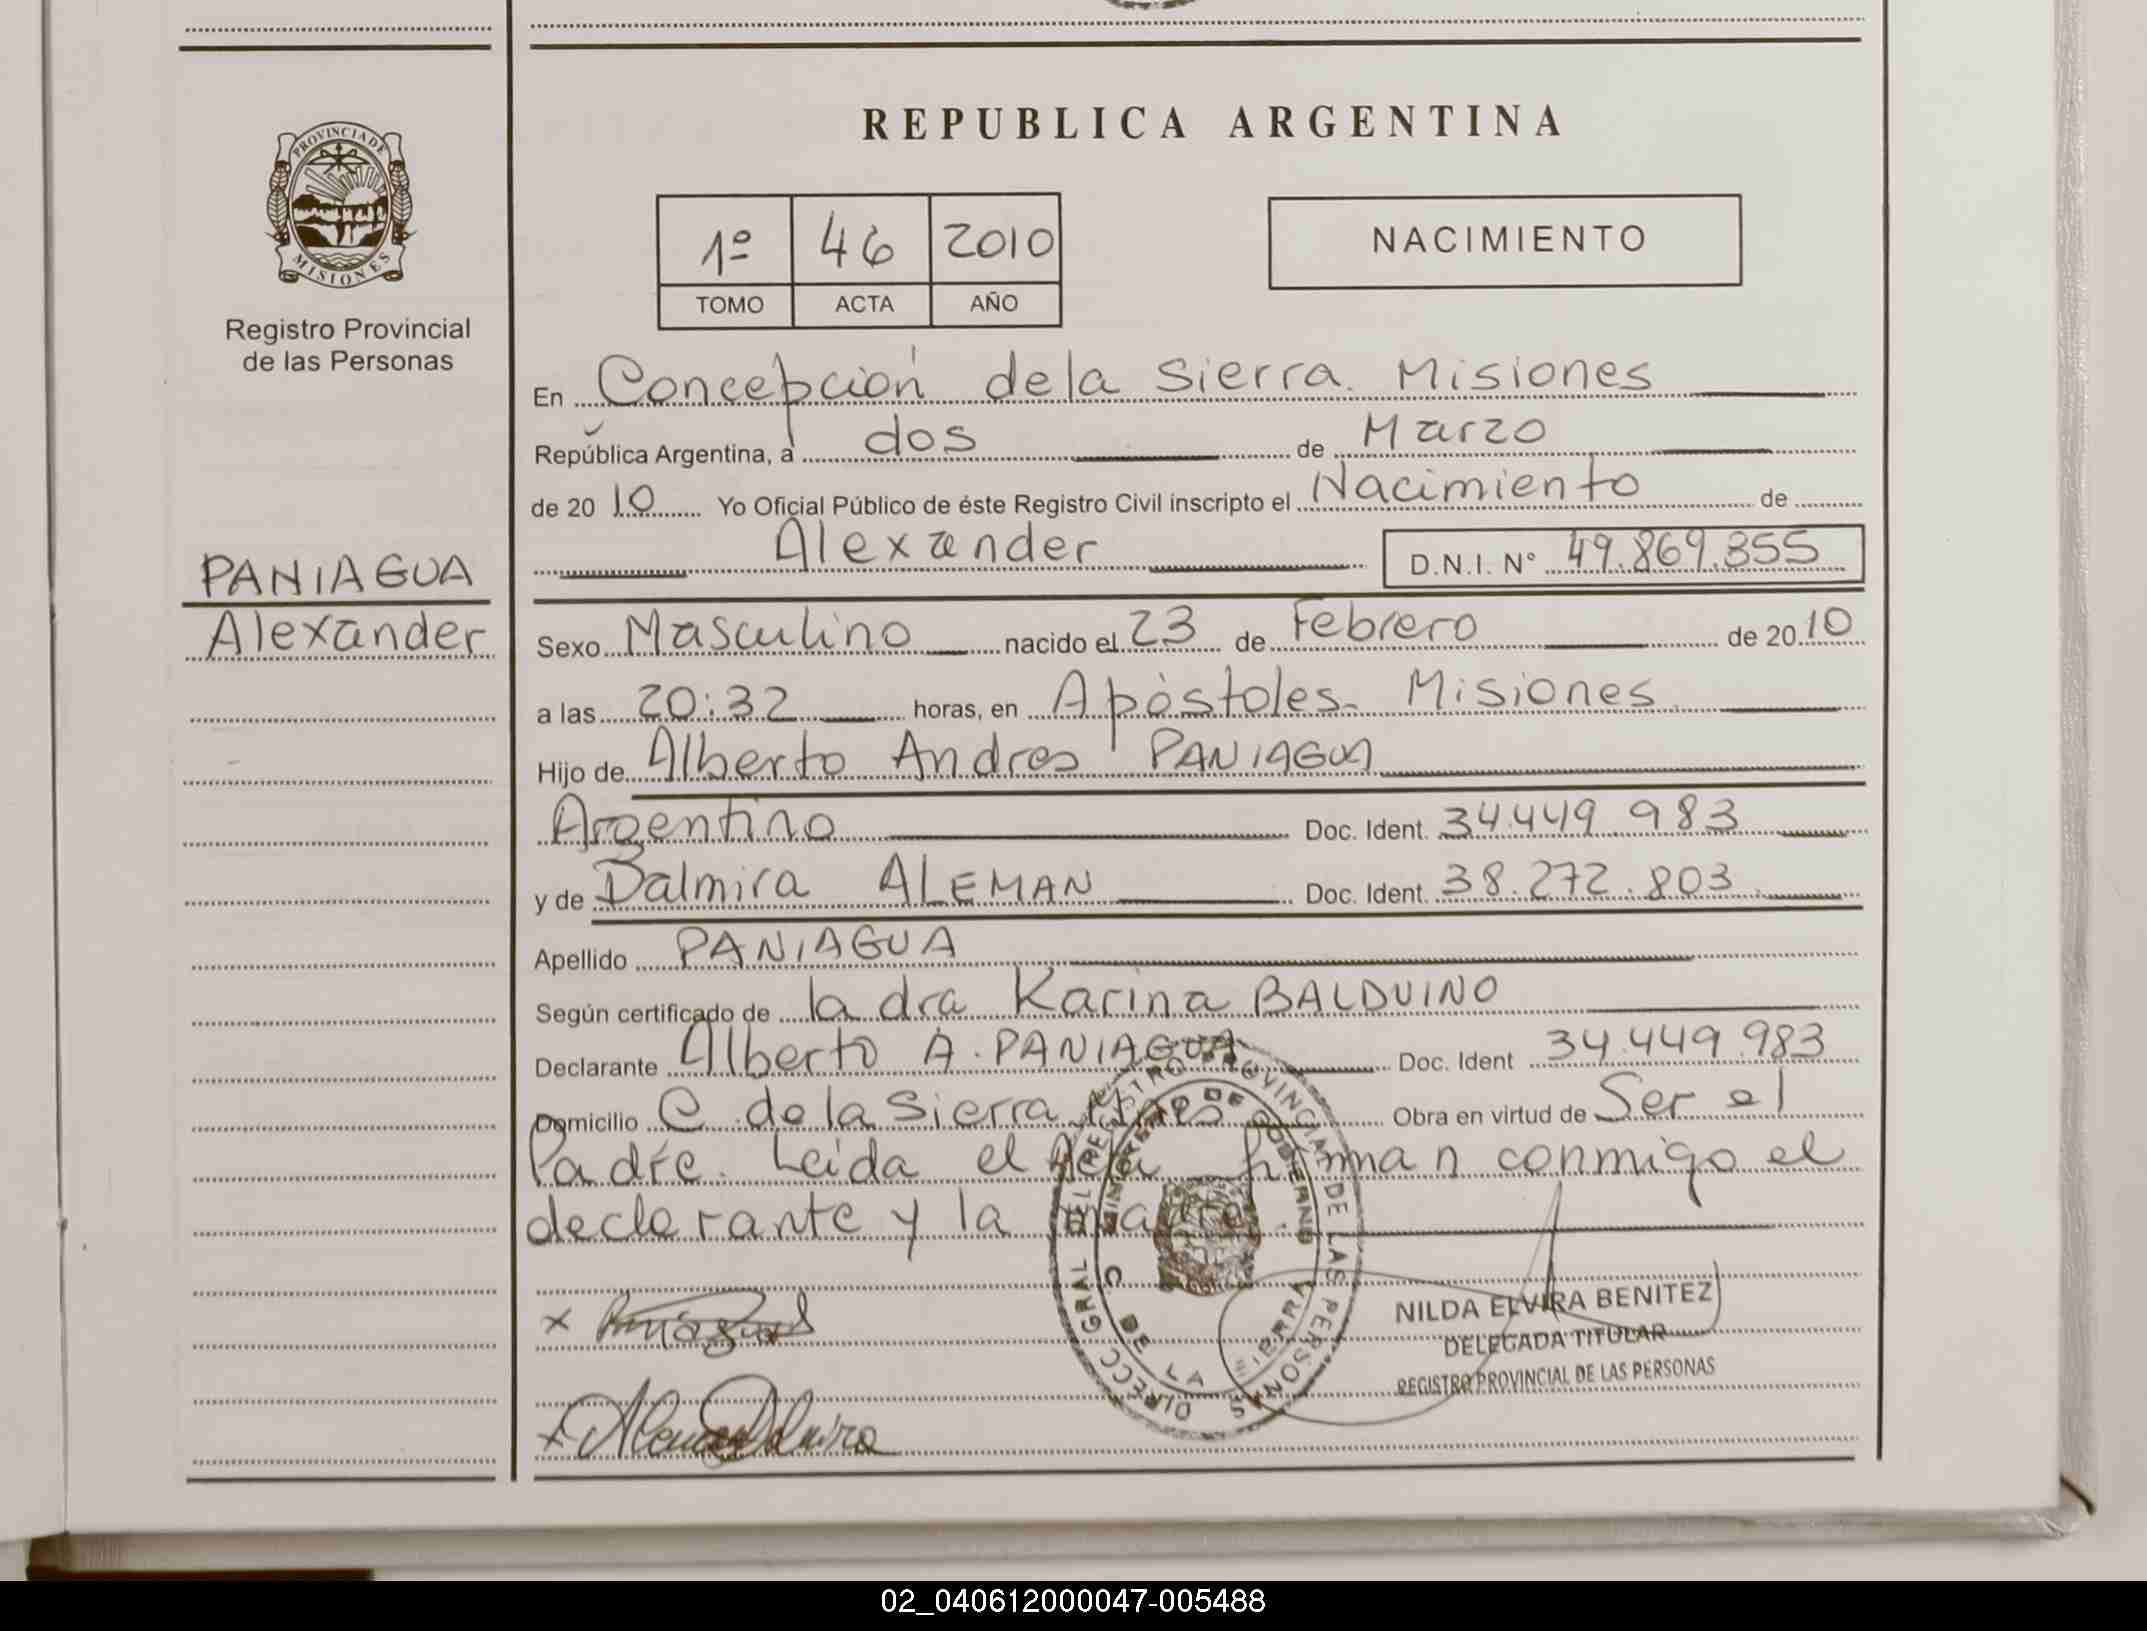 PROVINCIA DE
MISIONES
Registro Provincial
de las Personas
PANIAGUA
Alexander
REPUBLICA ARGENTINA
1º 46 2010
TOMO ACTA AÑO
NACIMIENTO
En Concepción de la Sierra. Misiones
República Argentina, a dos de Marzo
de 2010 Yo Oficial Público de éste Registro Civil inscripto el Nacimiento de
Alexander D.N.I. N° 49.869.355
Sexo Masculino nacido el 23 de Febrero de 2010
a las 20:32 horas, en Apóstoles. Misiones
Hijo de Alberto Andres PANIAGUA
Argentino Doc. Ident. 34.449.983
y de Dalmira ALEMAN Doc. Ident. 38.272.803
Apellido PANIAGUA
Según certificado de la dra Karina BALDUINO
Declarante Alberto A. PANIAGUA Doc. Ident 34.449.983
Domicilio C. de la Sierra Mnes Obra en virtud de Ser el
Padre. Leida el Acta firman conmigo el
declarante y la madre.
x Paniagua
x Aleman Dalmira
DIRECC GRAL DEL REGISTRO PROVINCIAL DE LAS PERSONAS
MINISTERIO DE GOBIERNO
C. DE LA SIERRA
NILDA ELVIRA BENITEZ
DELEGADA TITULAR
REGISTRO PROVINCIAL DE LAS PERSONAS
02_040612000047-005488